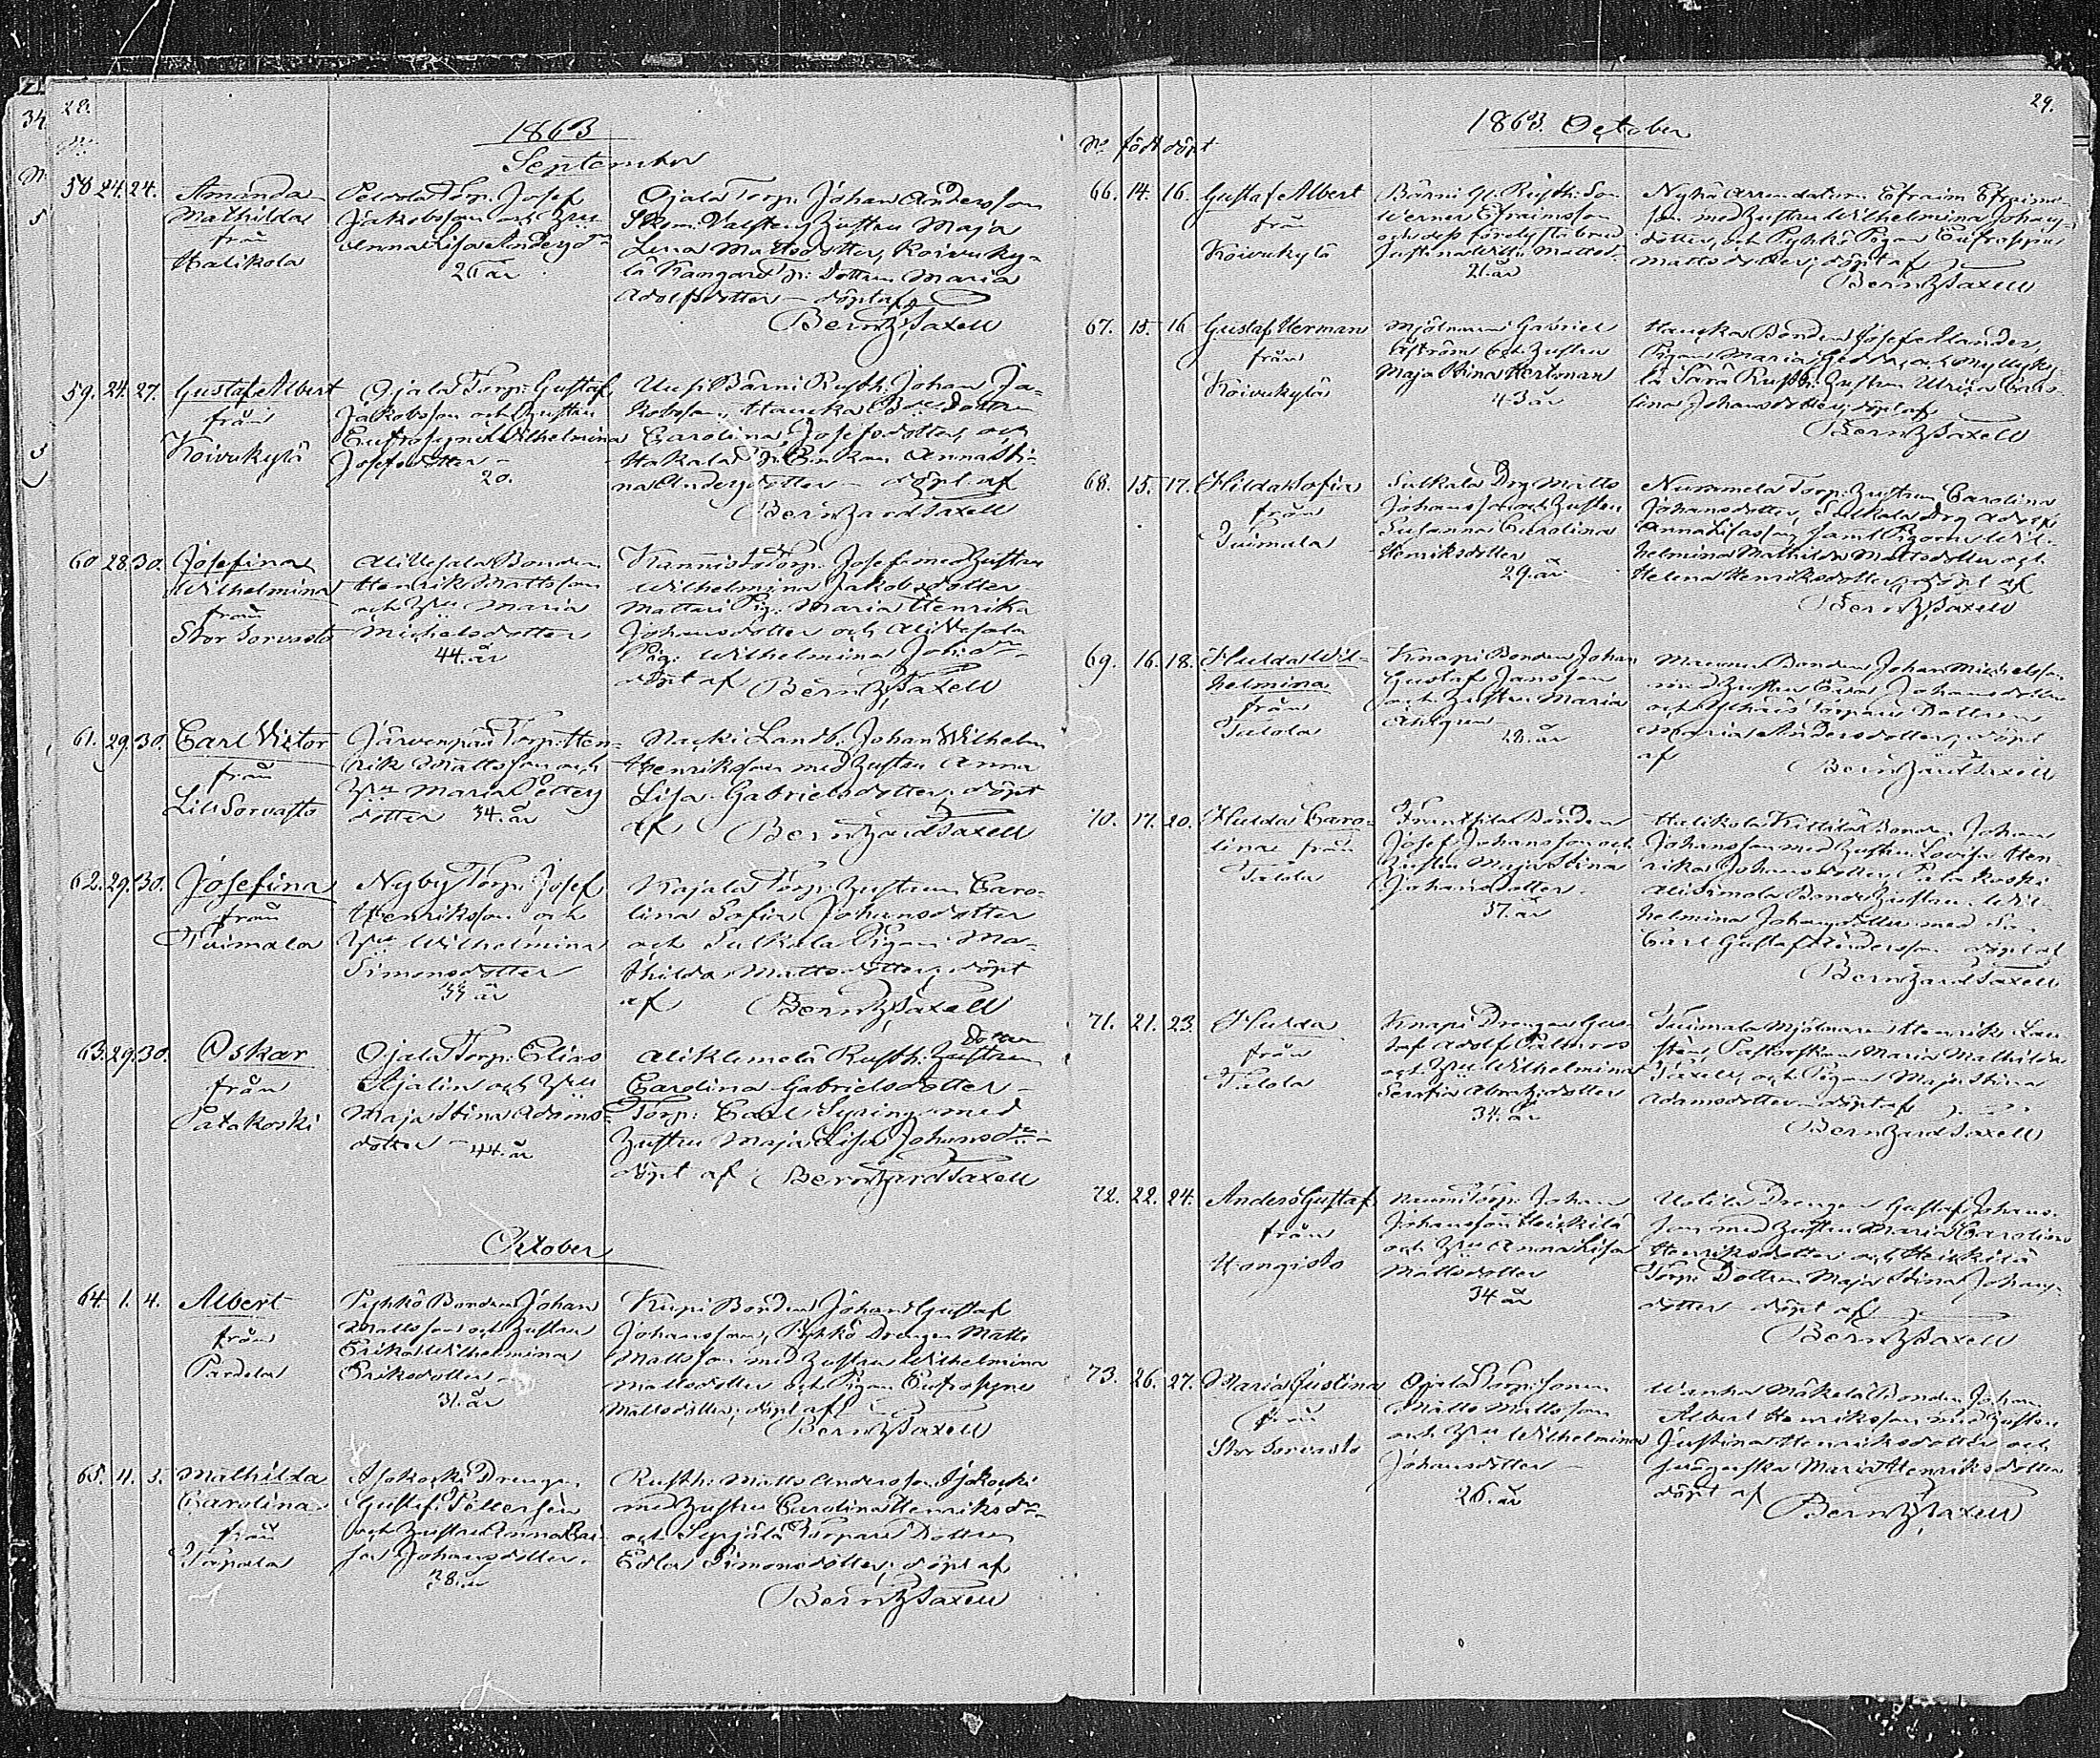 28.
1863
September
58 24. 24. Amanda
Mathilda
från
Halikola
Torp. Josef
Jakobsson och Hru
Anna Lisa Andersdr
26 år
Ojala Torp. Johan Andersson
Skom. Valsten Hustru Maja
Lena Mattsdotter, Koivuky-
lä Kangare Dottren Maria
Adolfsdotter – döpt af
Bernh. Saxell
59. 24. 27. Gustaf Albert
från
Koivukylä
Ojala Torp. Gustaf
Jakobsson och Hustru
Eufrosyne Wilhelmina
Josefsdotter –
20.
Uusi Bärni Rusth. Johan Ja-
kobsson, Haucka Dottren
Carolina Josefsdotter, och
Hakala Enkan Anna Sti-
na Andersdotter – döpt af
Bernhard Saxell
60 28 30. Josefina
Wilhelmina
från
Stor Sorvasto
Ali Uesala Bonden
Henrik Mattsson
och Hru Maria
Michelsdotter
44. år
Kannisto Torp. Josef med Hustru
Wilhelmina Jakobsdotter
Mattari Pig. Maria Henrika
Johansdotter och Ali Uesala
Pig. Wilhelmina
döpt af Bernh. Saxell
61. 29. 30. Carl Victor
från
Lill Sorvasto
Järvenpää Torp. Hen-
rik Mattsson och
Hru Maria Petters
dotter 34. år
Nacki Landb. Johan Wilhelm
Henriksson med Hustru Anna
Lisa Gabrielsdotter; döpt
af Bernhard Saxell
62. 29. 30. Josefina
från
Tuimala
Nyby Torp. Josef
Henriksson och
Hru Wilhelmina
Simonsdotter
33 år
Kajala Torp. Hustrun Caro-
lina Sofia Johansdotter
och Sulkala Pigan Ma-
thilda Mattsdotter; döpt
af Bernh. Saxell
63. 29. 30. Oskar
från
Patakoski
Ojala Torp. Elias
Ajalin och Hru
Maja Stina Adams-
dotter – 44. år
Dotren
Aliklemelä Rusth. Hustrun
Carolina Gabrielsdotter –
Torp. Carl Syring med
Hustru Maja Lisa Johansdr –
döpt af Bernhard Saxell
October
64. 1. 4. Albert
från
Pardela
Pyhkö Bonden Johan
Mattsson och Hustru
Erika Wilhelmina
Eriksdotter –
31. år
Kupi Bonden Johan Gustaf
Johansson, Pyhkö Drengen Matts
Mattsson med Hustru Wilhelmina
Mattsdotter och Pigan Eufrosyne
Mattsdotter; döpt af
Bernh. Saxell
65. 4. 5. Mathilda
Carolina
från
Tapala
Isokoski Drengen
Gustaf Pettersson
och Hustru Anna Cai-
sa Johansdotter.
28. år
Rusth. Matts Andersson Isokoski
med Hustru Carolina Henriksdr
och Syrjälä Torpare Dottren
Edla Simonsdotter; döpt af
Bernh. Saxell
29.
1863. October
No födt döpt
66. 14. 16. Gustaf Albert
från
Koivukylä
Bärni G. Rusth. Son
Werner Efraimsson
och dess förelofsta brud
Justina Wilh. Mattsd.
21. år
Nykä Arrendatorn Efraim Efraims-
son med Hustru Wilhelmina Johans-
dotter, och Pyhkö Pigan Eufrosyne
Mattsdotter; döpt af
Bernh. Saxell
67. 15. 16 Gustaf Herman
från
Koivukylä
Mjölnaren Gabriel
Åström och Hustru
Maja Stina Hertman
43 år
Haucka Bonden Josef Elander,
Pigan Maria och Myllyky-
lä Sara Rusth. Hustrun Ulrica Caro-
lina Johansdotter; döpt af
Bernh. Saxell
68. 15. 17. Hilda Sofia
från
Tuimala
Sulkala Drg Matts
Johansson och Hustru
Susanna Carolina
Henriksdotter
29. år
Nummela Torp. Hustrun Carolina
Johansdotter, Sulkala Drg Adolf
Anna Lisasson samt Pigorna Wil-
helmina Mathilda Mattsdotter och
Helena Henriksdotter, döpt af
Bernh. Saxell
69. 16. 18. Hulda Wil-
helmina
från
Talola
Knapi Bonden Johan
Gustaf Jansson
och Hustru Maria
Ahlgren –
28. år
Bonden Johan Michelsson
med Hustru Eva Johansdotter
och Torpare Dottren
Maria Andersdotter; döpt
af Bernhard Saxell
70. 17. 20. Hulda Caro-
lina från
Talola
Frantsila Bonden
Josef Johansson och
Hustru Maja Stina
Johansdotter.
37. år
Halikola Kittilä Bonden Johan
Johansson med Hustru Lovisa Hen-
rika Johansdotter, Patakoski
Alisimola Bonde Hustrun Wil-
helmina Johansdotter med Son
Carl Gustaf Andersson döpt af
Bernhard Saxell
71. 21. 23. Hulda
från
Talola
Knapi Drengen Gus-
taf Adolf Palmros
och Hru Wilhelmina
Serafia Abrahsdotter
34. år
Tuimala Mjölnaren Henrik
Pastorskan Maria Mathilda
Saxell, och Pigan Maja Stina
Adamsdotter – döpt af
Bernhard Saxell
72. 22. 24. Anders Gustaf
från
Hongisto
Torp. Johan
Johansson Heickilä
och Hru Anna Lisa
Mattsdotter
34 år
Uotila Drengen Gustaf Johans-
son med Hustru Maria Carolina
Henriksdotter och Heickilä
Torp. Dottren Maja Stina Johans-
dotter döpt af
Bernh. Saxell
73. 26. 27. Maria Justina
från
Stor Sorvasto
Ojala Torp. Sonen
Matts Mattsson
och Hru Wilhelmina
Johansdotter –
26. år
Wanha Mäkelä Bonden Johan
Albert Henriksson med Hustru
Justina Henriksdotter och
swägerska Maria Henriksdotter
döpt af
Bernh. Saxell